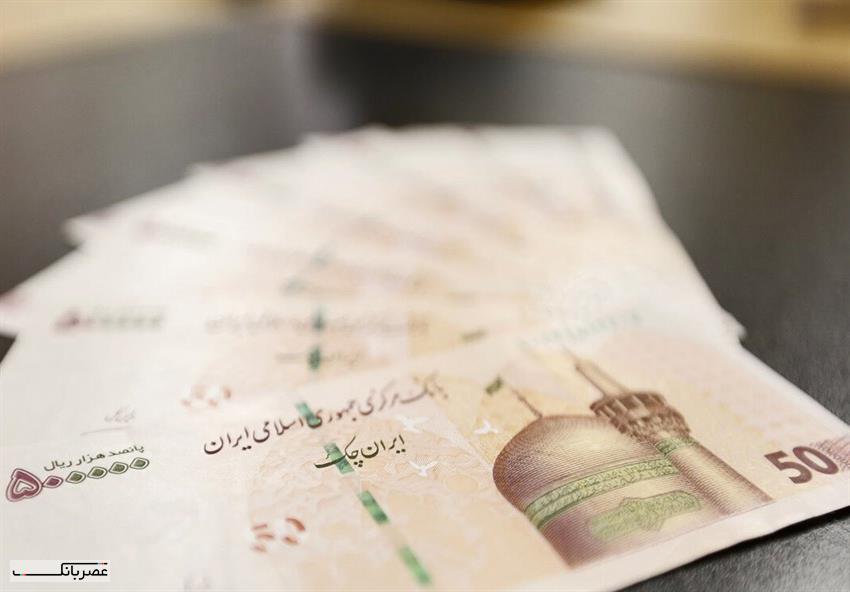 بانک مرکزی جمهوری اسلامی ایران
ایران چک
پانصد هزار ریال
۵۰۰۰۰۰
50
عصر بانک